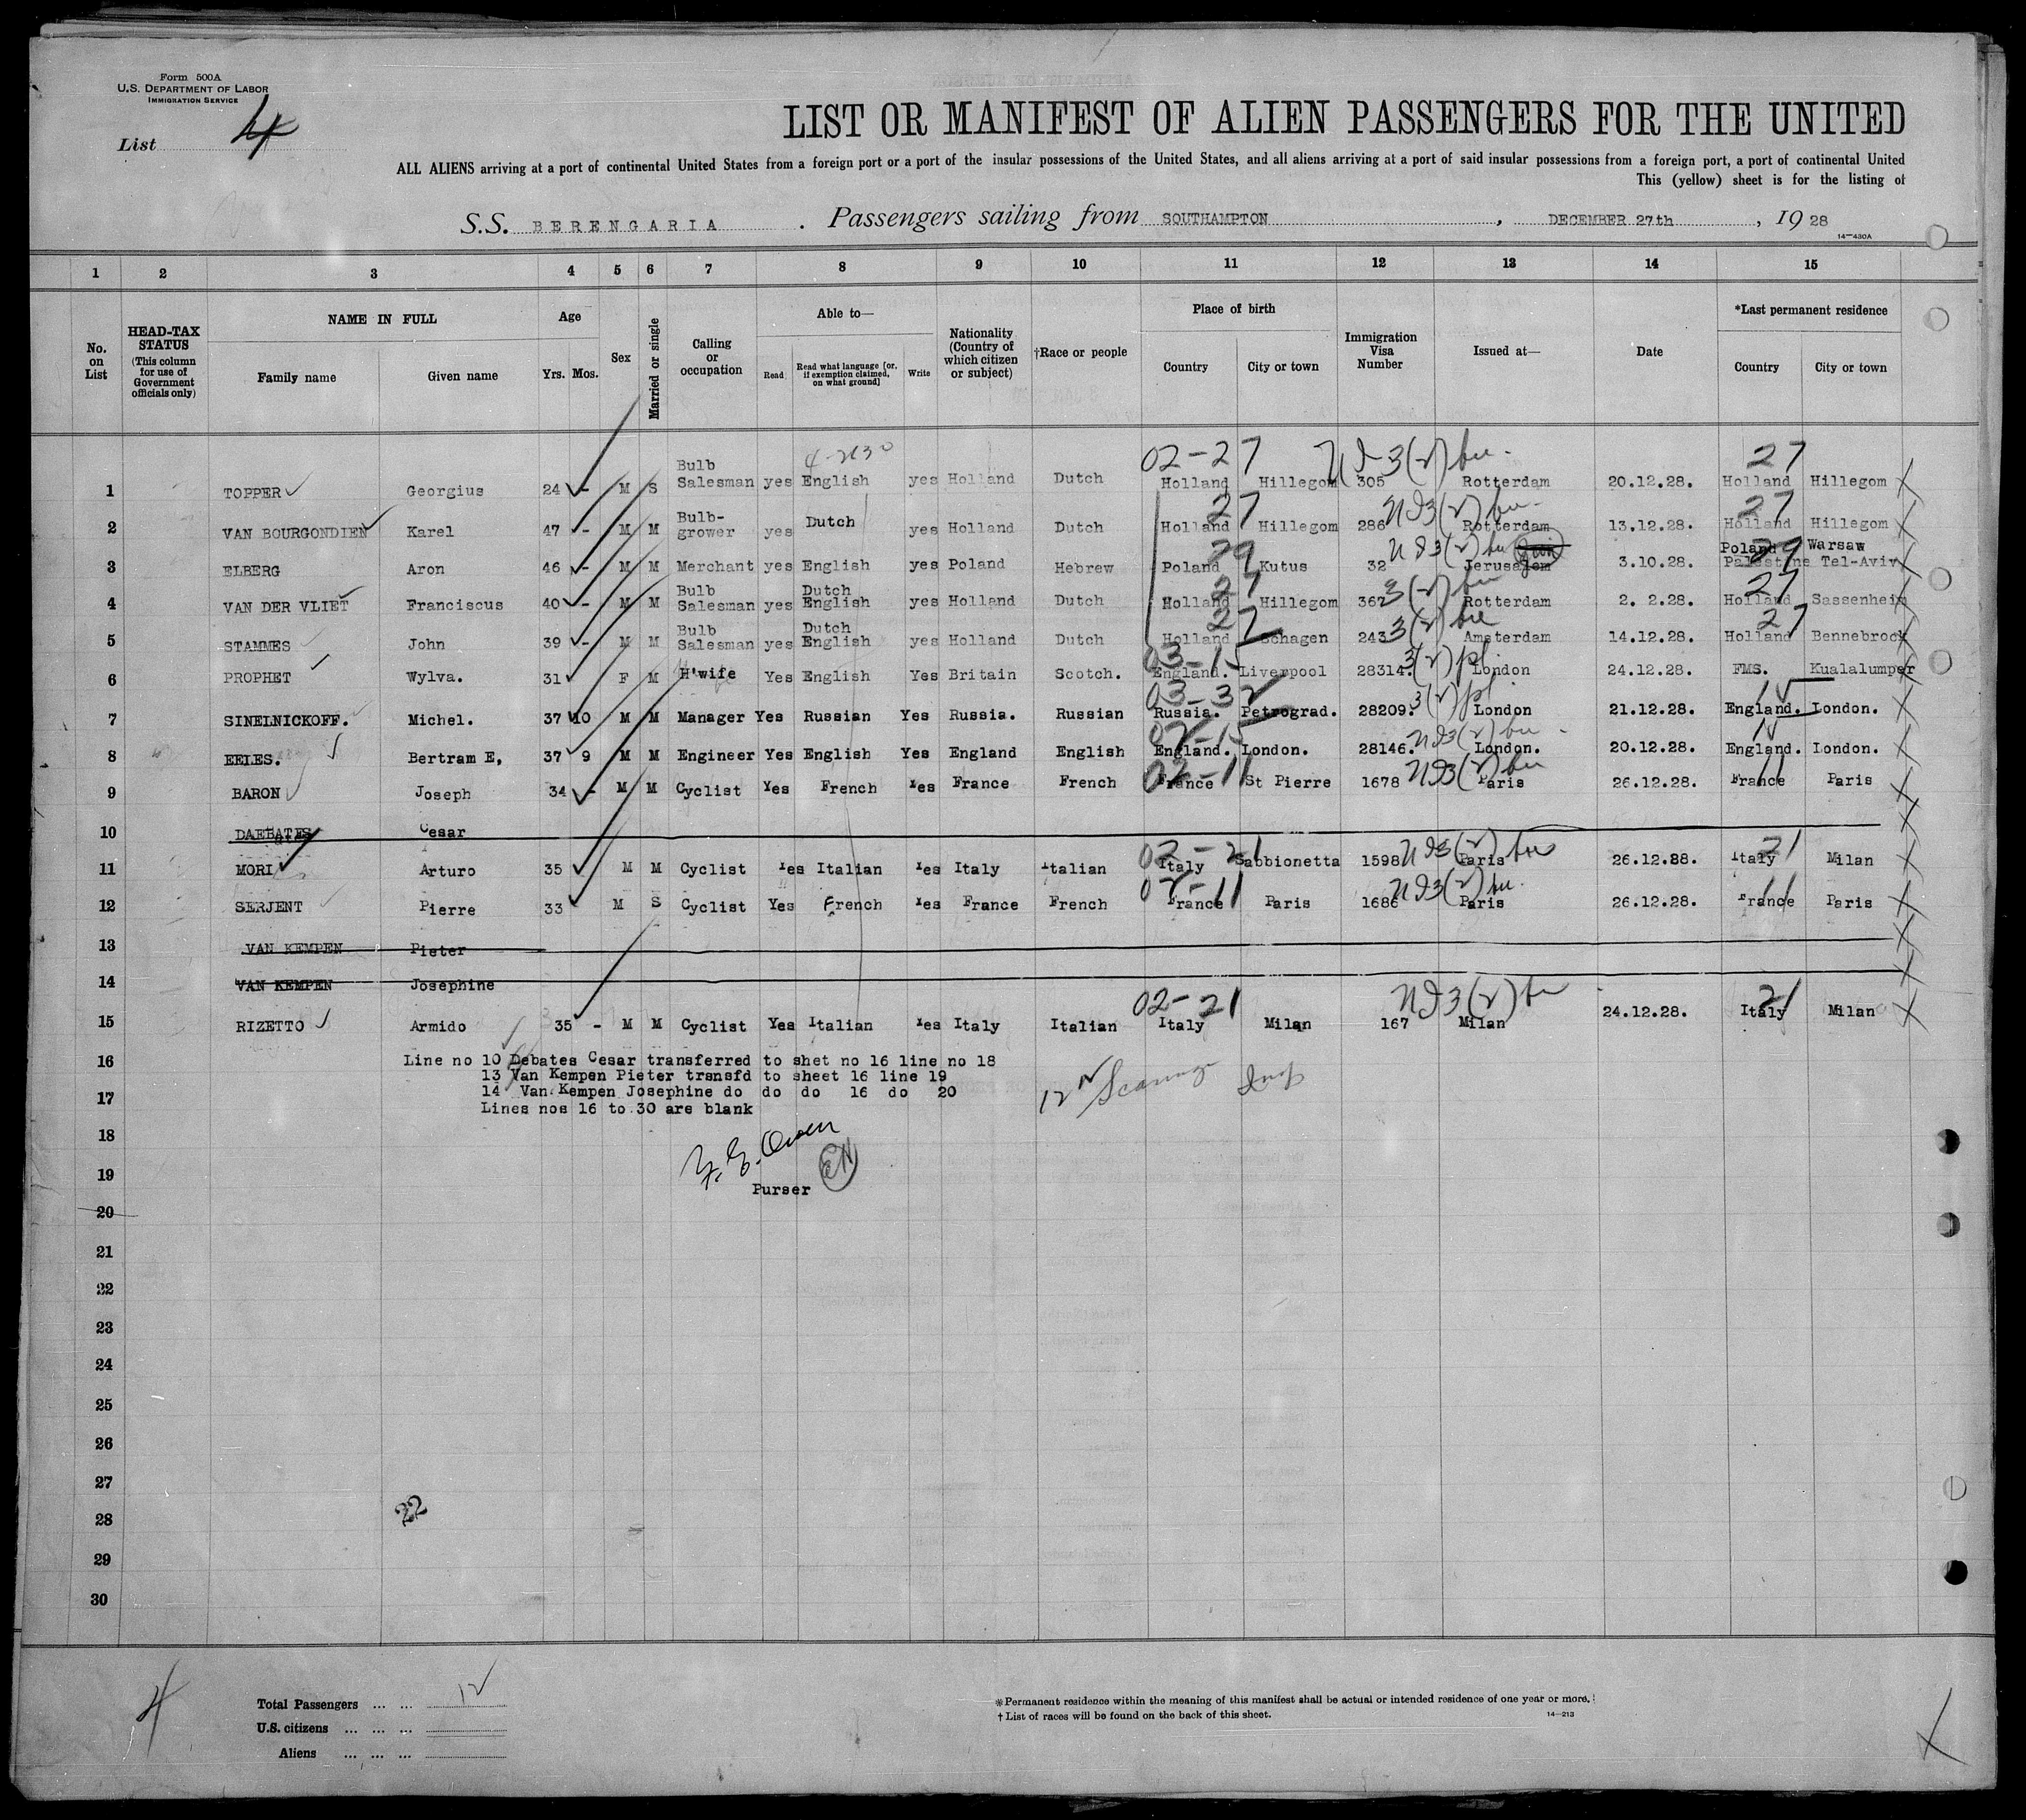 Form 500A
U.S. DEPARTMENT OF LABOR
IMMIGRATION SERVICE
List 4
LIST OR MANIFEST OF ALIEN PASSENGERS FOR THE UNITED
ALL ALIENS arriving at a port of continental United States from a foreign port or a port of the insular possessions of the United States, and all aliens arriving at a port of said insular possessions from a foreign port, a port of continental United
This (yellow) sheet is for the listing of
S.S. BERENGARIA. Passengers sailing from SOUTHAMPTON, DECEMBER 27th, 1928
14—430A
1 2 3 4 5 6 7 8 9 10 11 12 13 14 15
No. on List
HEAD-TAX STATUS (This column for use of Government officials only)
NAME IN FULL
Family name Given name
Age
Yrs. Mos.
Sex
Married or single
Calling or occupation
Able to—
Read Read what language [or, if exemption claimed, on what ground] Write
Nationality (Country of which citizen or subject)
†Race or people
Place of birth
Country City or town
Immigration Visa Number
Issued at—
Date
*Last permanent residence
Country City or town
4-2630 02-27 3(2) 27
1 TOPPER Georgius 24 - M S Bulb Salesman yes English yes Holland Dutch Holland Hillegom 305 Rotterdam 20.12.28. Holland Hillegom
27 3(2) 27
2 VAN BOURGONDIEN Karel 47 - M M Bulb-grower yes Dutch yes Holland Dutch Holland Hillegom 286 Rotterdam 13.12.28. Holland Hillegom
29 3(2) 29 Poland Warsaw
3 ELBERG Aron 46 - M M Merchant yes English yes Poland Hebrew Poland Kutus 32 Jerusalem 3.10.28. Palestine Tel-Aviv
27 3(2) 27
4 VAN DER VLIET Franciscus 40 - M M Bulb Salesman yes Dutch English yes Holland Dutch Holland Hillegom 367 Rotterdam 2. 2.28. Holland Sassenheim
27 3(2) 27
5 STAMMES John 39 - M M Bulb Salesman yes Dutch English yes Holland Dutch Holland Schagen 243 Amsterdam 14.12.28. Holland Bennebrock
03-15 3(2) pl
6 PROPHET Wylva. 31 F M H'wife Yes English Yes Britain Scotch. England. Liverpool 28314. London 24.12.28. FMS. Kualalumper
03-32 3(2) pl 15
7 SINELNICKOFF. Michel. 37 10 M M Manager Yes Russian Yes Russia. Russian Russia. Petrograd. 28209. London 21.12.28. England. London.
02-15 3(2) 15
8 EELES. Bertram E, 37 9 M M Engineer Yes English Yes England English England. London. 28146. London. 20.12.28. England. London.
02-11 3(2) 11
9 BARON Joseph 34 - M M Cyclist Yes French Yes France French France St Pierre 1678 Paris 26.12.28. France Paris
10 DAEBATES Cesar
02-21 3(2) 21
11 MORI Arturo 35 M M Cyclist Yes Italian Yes Italy Italian Italy Sabbionetta 1598 Paris 26.12.88. Italy Milan
02-11 3(2) 11
12 SERJENT Pierre 33 M S Cyclist Yes French Yes France French France Paris 1686 Paris 26.12.28. France Paris
13 VAN KEMPEN Pieter
14 VAN KEMPEN Josephine
02-21 3(2) 21
15 RIZETTO Armido 35 - M M Cyclist Yes Italian Yes Italy Italian Italy Milan 167 Milan 24.12.28. Italy Milan
16 Line no 10 Debates Cesar transferred to shet no 16 line no 18
13 Van Kempen Pieter transfd to sheet 16 line 19
17 14 Van Kempen Josephine do do do 16 do 20
Lines nos 16 to 30 are blank
18
Owen
19
Purser
20
21
22
23
24
25
26
27
28
22
29
30
4
Total Passengers ... ... 12
U.S. citizens ... ... ...
Aliens ... ... ...
*Permanent residence within the meaning of this manifest shall be actual or intended residence of one year or more.
†List of races will be found on the back of this sheet.
14—213